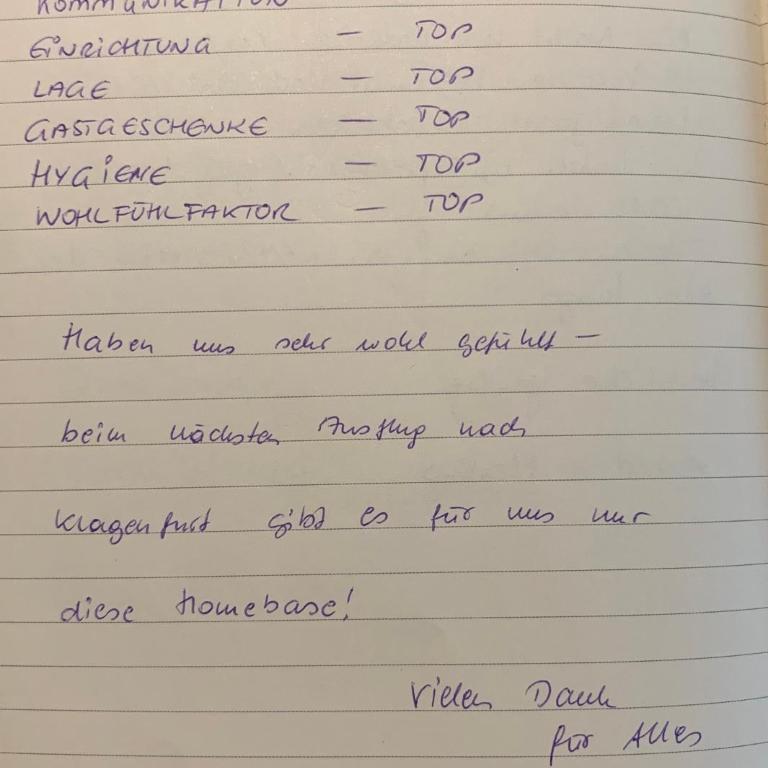 KOMMUNIKATION
EINRICHTUNG — TOP
LAGE — TOP
GASTGESCHENKE — TOP
HYGIENE — TOP
WOHLFÜHLFAKTOR — TOP
Haben uns sehr wohl gefühlt —
beim nächsten Ausflug nach
Klagenfurt gibt es für uns nur
diese Homebase!
Vielen Dank
für Alles